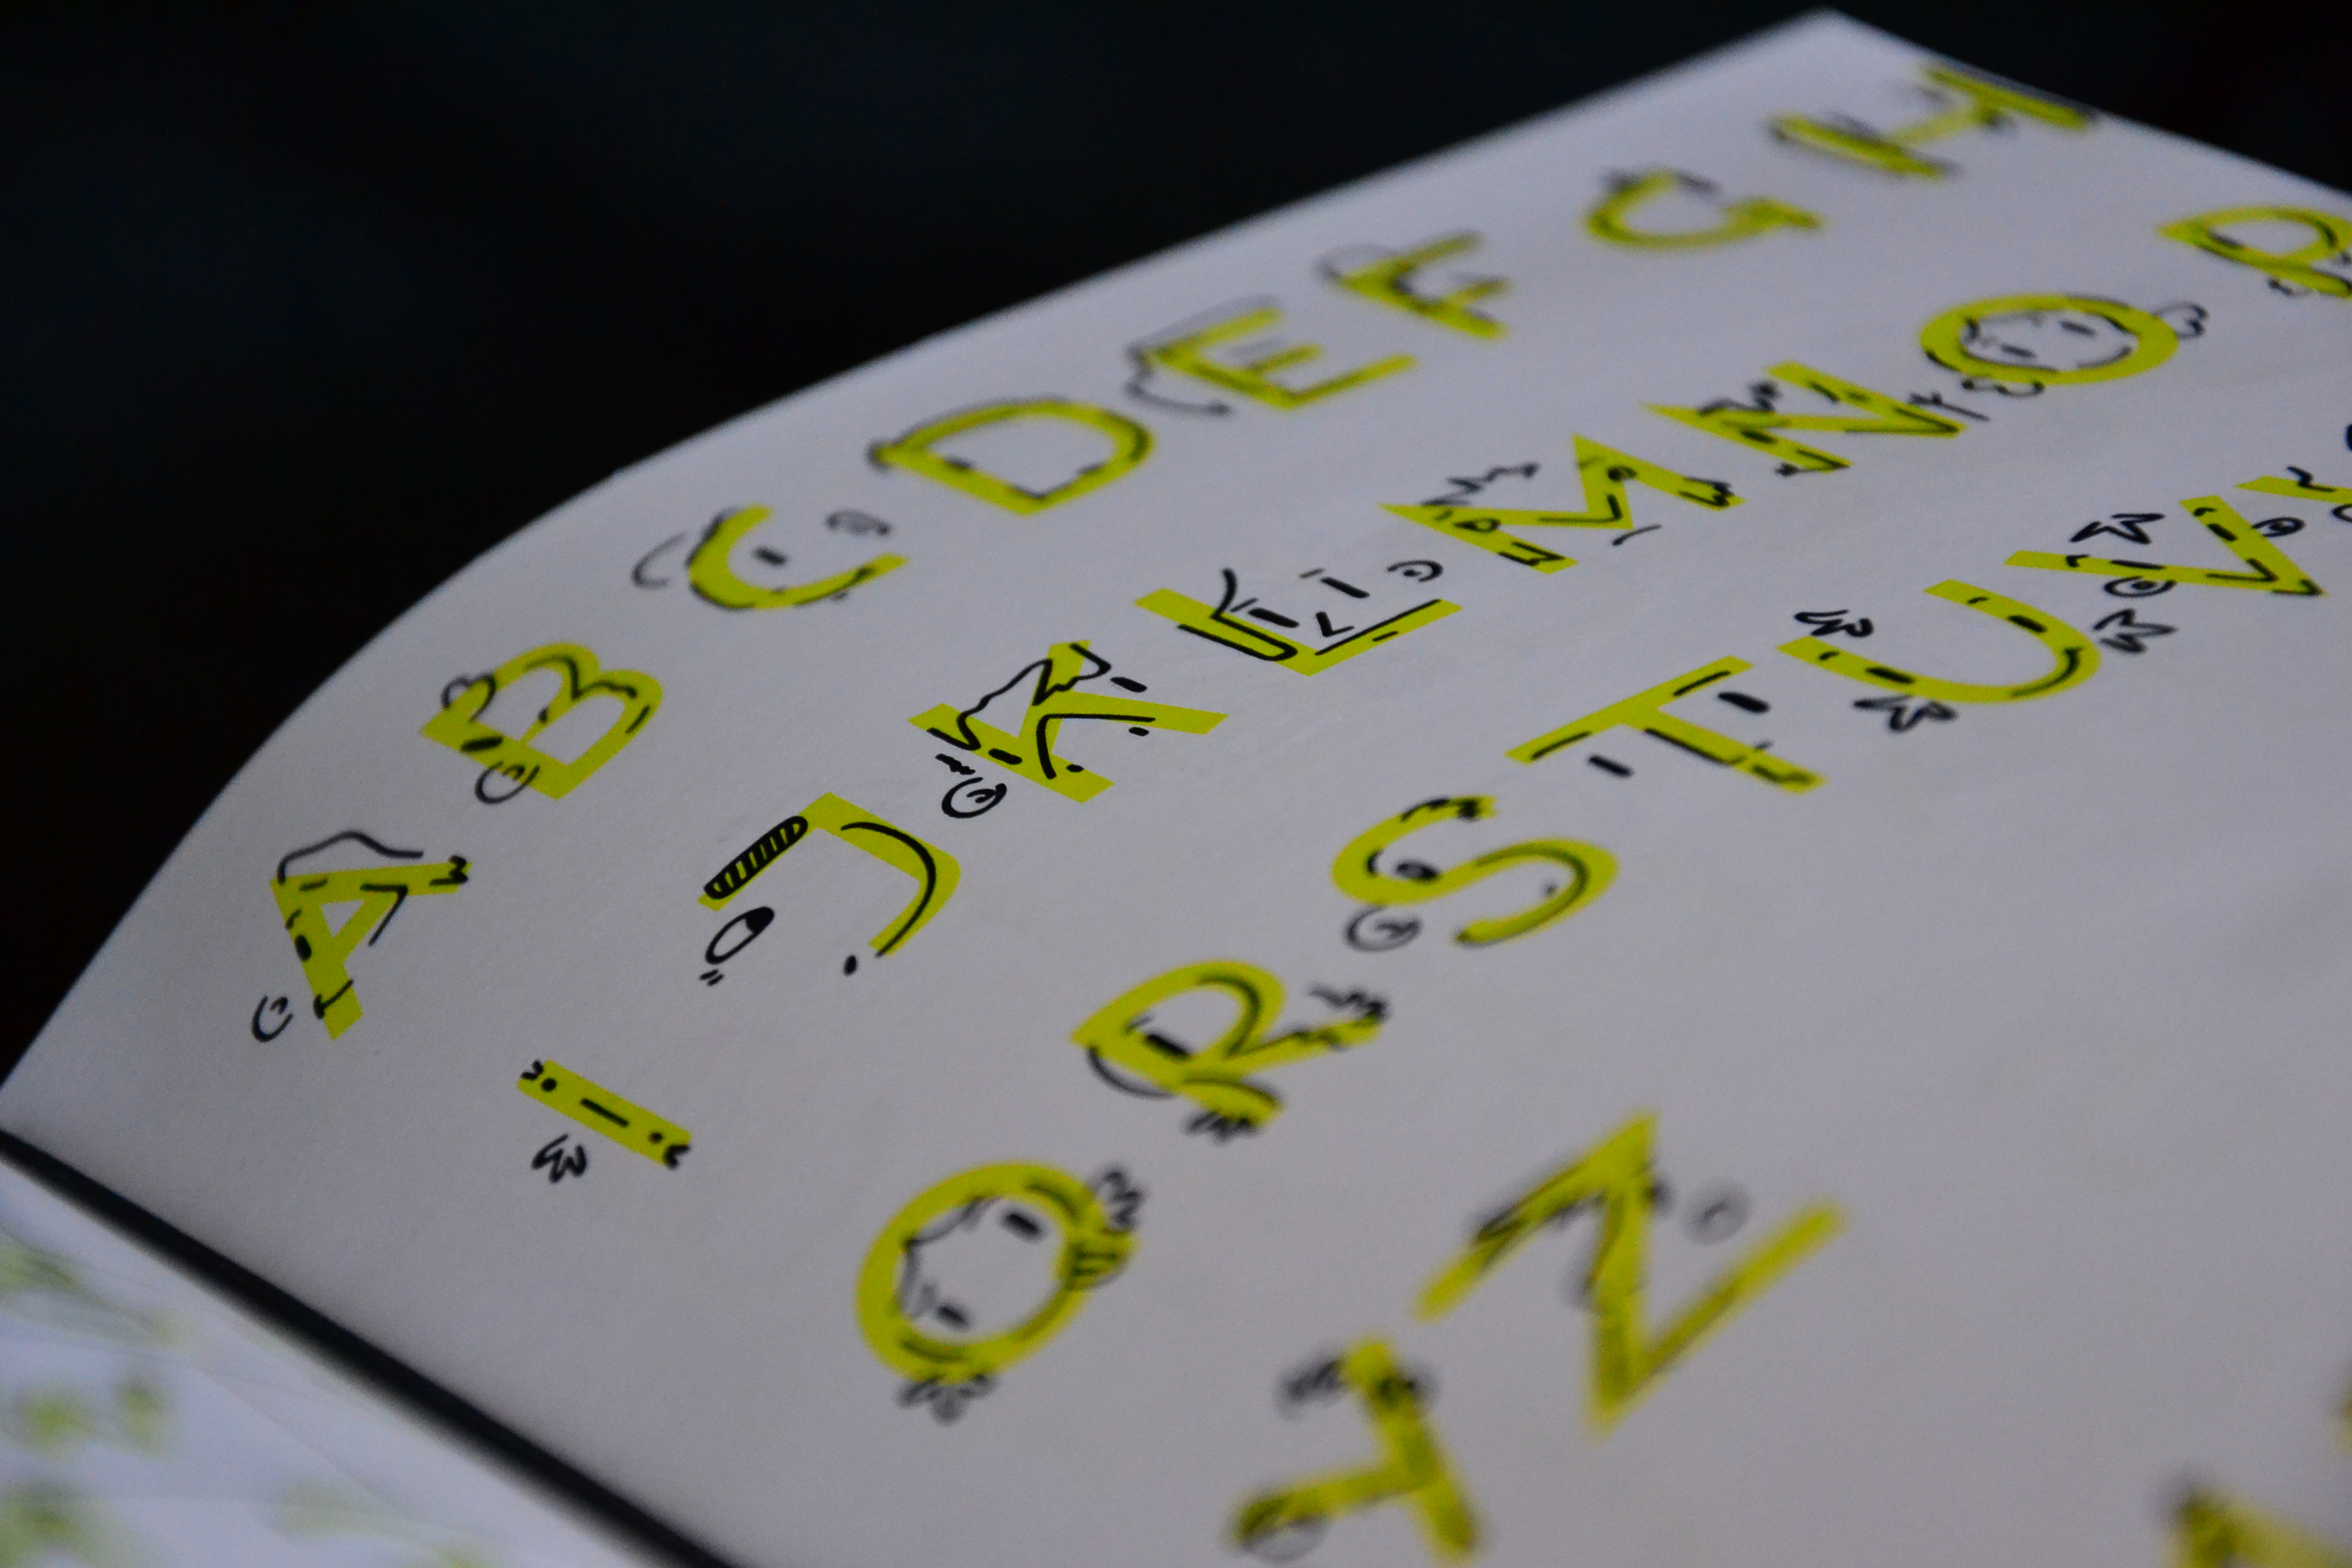 A B C D E F G H
I J K L M N O P
Q R S T U V
Y Z